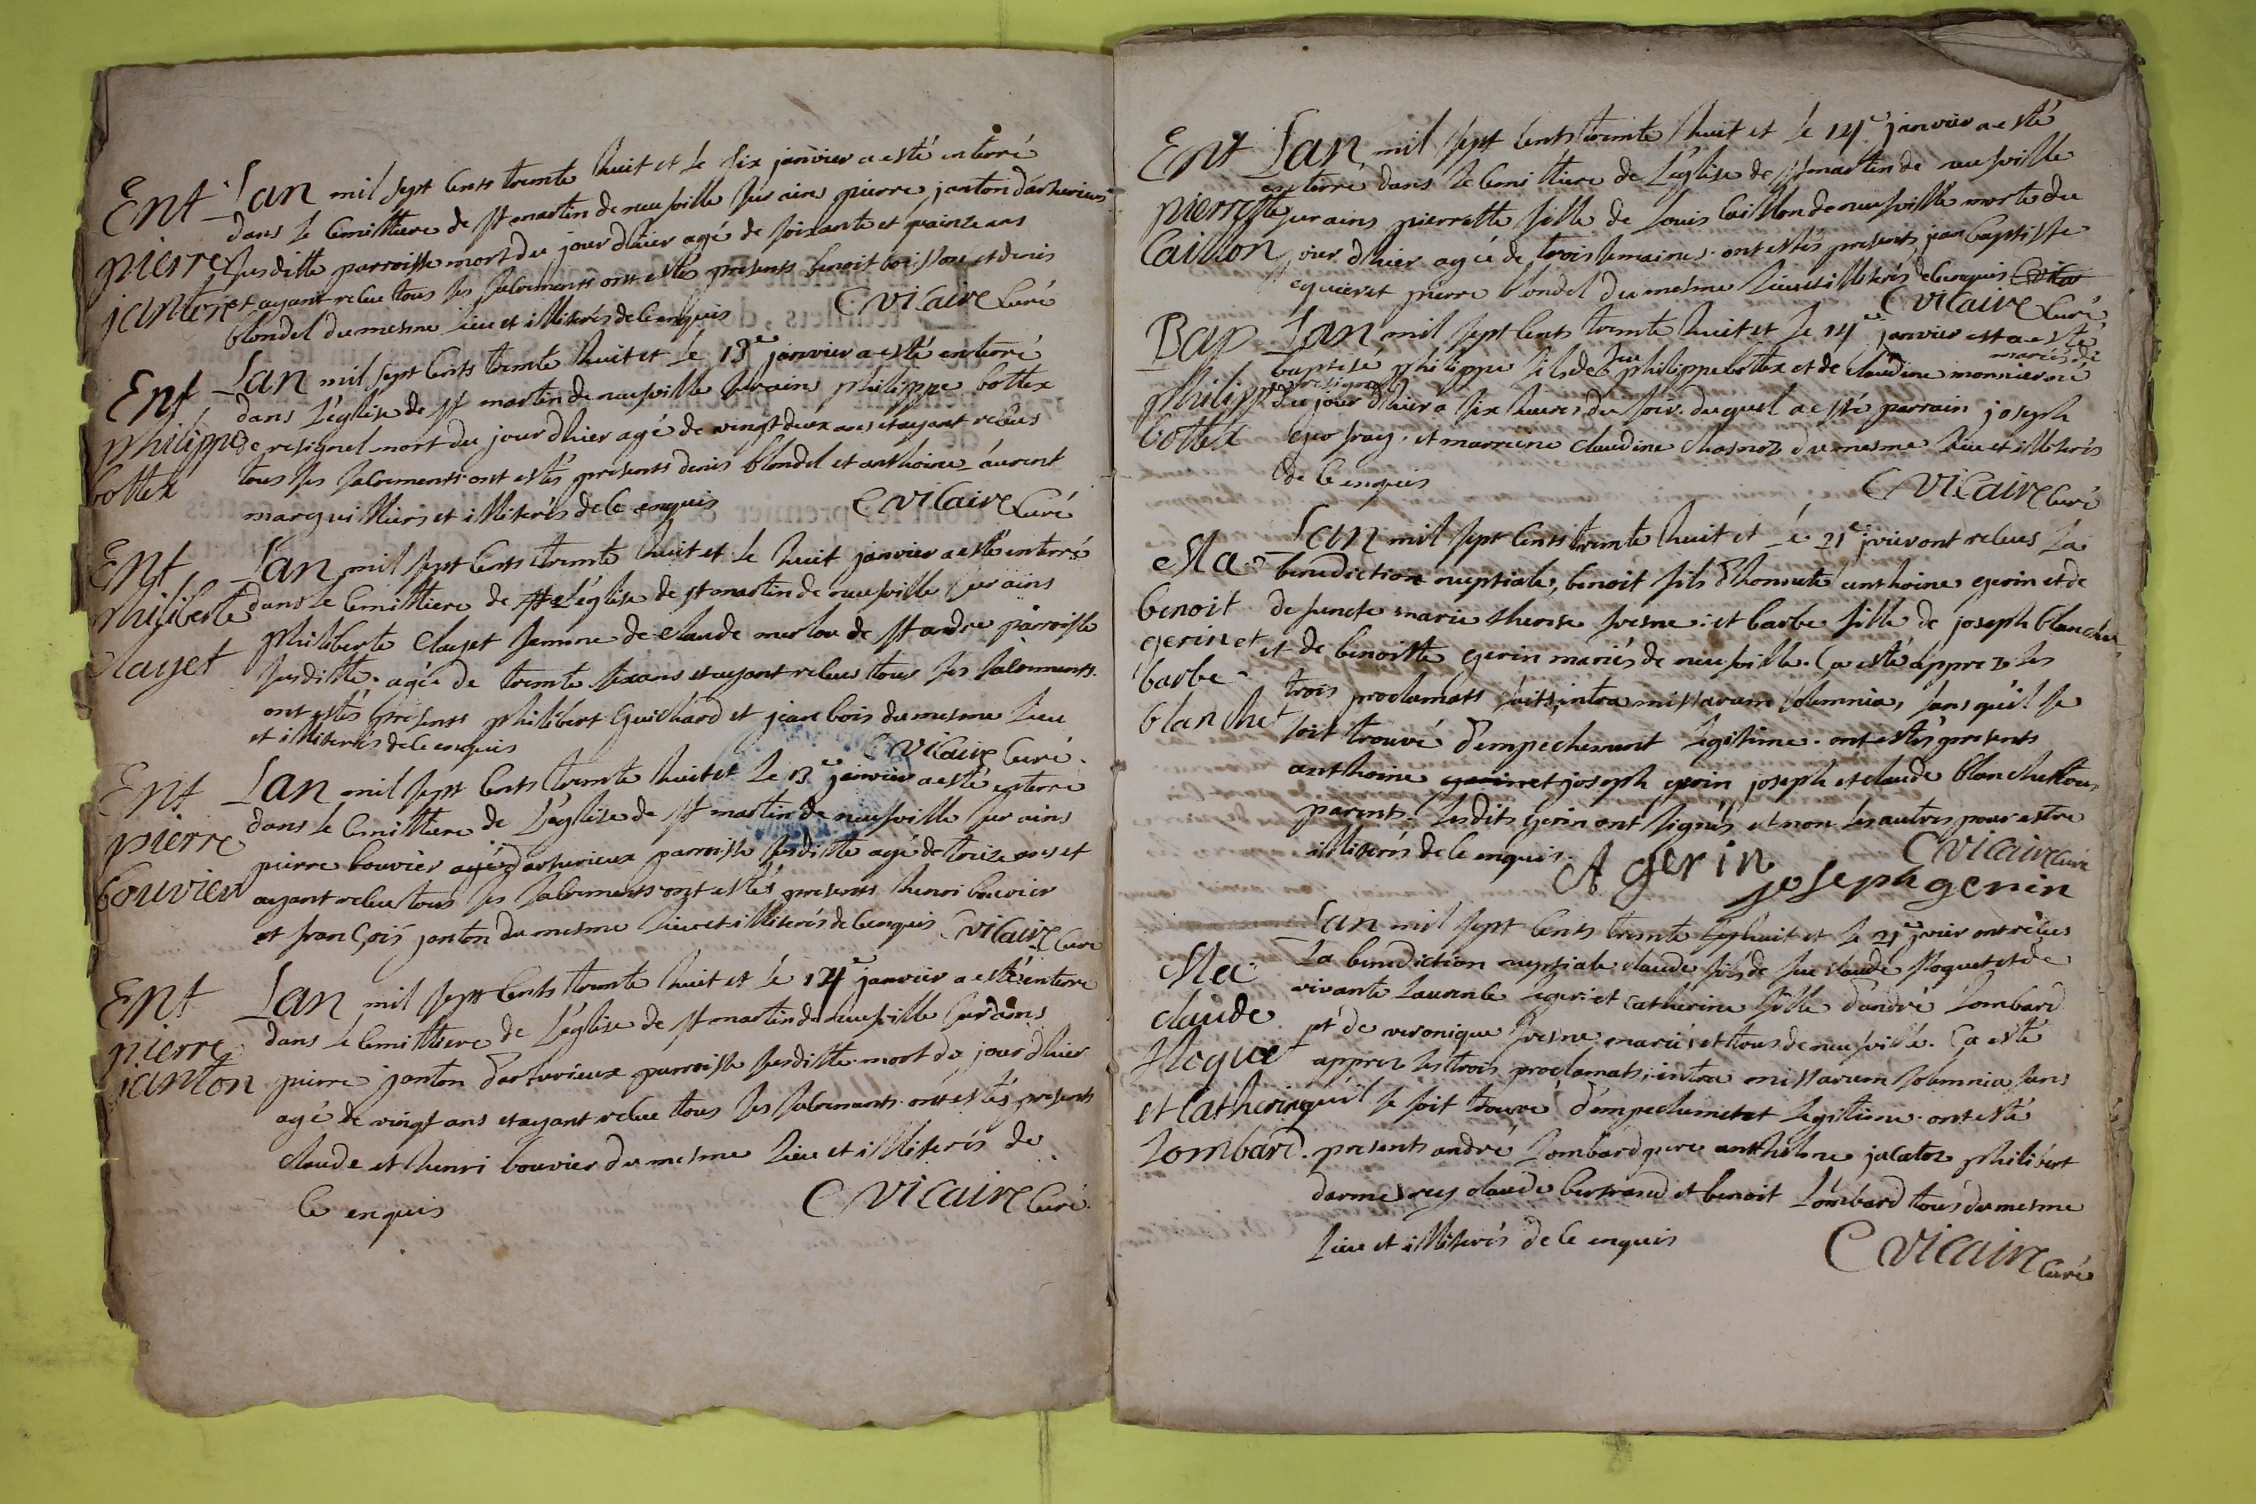 Ent
pierre
janton
Lan mil sept cents trente huit et le six janvier a esté enterré
dans le cemittiere de st martin de neufville sur ains pierre janton
susditte parroisse mort du jour dhier agé de soixante et quainze ans
et ayant relue tous ses sacrements ont estés presents benoit et denis
blondel du mesme lieu et illiterés de ce enquis C vicaire Curé
Ent
philippe
bottex
Lan mil sept cents trente huit et le 13e janvier a esté enterré
dans léglise de st martin de neufville sur ains philippe bottex
de resignel mort du jour dhier agé de vingt deux ans et ayant relues
tous ses sacrements ont estés presents denis blondel et anthoine
marguilliers et illiterés de ce enquis C vicaire Curé
Ent
philiberte
clayet
Lan mil sept cents trente huit et le huit janvier a esté enterré
dans le cemittiere de léglise de st martin de neufville sur ains
philiberte clayet femme de claude merlou de st andre parroisse
susditte agée de trente six ans et ayant relues tous ses sacrements
ont estés presents philibert guichard et jean bois du mesme lieu
et illiterés de ce enquis C vicaire Curé
Ent
pierre
bouvier
Lan mil sept cents trente huit et le 13e janvier a esté enterré
dans le cemittiere de léglise de st martin de neufville sur ains
pierre bouvier parroisse susditte agé de treize ans et
ayant relue tous ses sacrements ont estés presents henri bouvier
et françois janton du mesme lieu et illiterés de ce enquis C vicaire Curé
Ent
pierre
janton
Lan mil sept cents trente huit et le 14e janvier a esté enterré
dans le cemittiere de léglise de st martin de neufville sur ains
pierre janton parroisse susditte mort du jour dhier
agé de vingt ans et ayant relue tous ses sacrements ont estés presents
claude et henri bouvier du mesme lieu et illiterés de
ce enquis C vicaire Curé
Ent
pierrette
Caillon
Lan mil sept cents trente huit et le 14e janvier a esté
enterré dans le cemittiere de léglise de st martin de neufville
sur ains pierrette fille de louis Caillon de neufville morte du
jour dhier agée de trois semaines ont estés presents jean baptiste
et pierre blondel du mesme lieu et illiterés de ce enquis
C vicaire Curé
Bap
philippe
bottex
Lan mil sept cents trente huit et le 14e janvier a esté
baptisé philippe fils de feu philippe bottex et de claudine monnier mariés de
resignel né
du jour dhier a six heures du soir duquel a esté parrain joseph
et marreine claudine chosnoz du mesme lieu et illiterés
de ce enquis C vicaire Curé
Ma
benoit
gerin et
barbe
blanchet
Lan mil sept cents trente huit et le 21e jvier ont relues la
benediction nuptiale, benoit fils dhonnete anthoine gerin et de
defuncte marie therese fresne: et barbe fille de joseph blanchet
et de benoitte gerin mariés de neufville. Ça esté apprez les
trois proclamats faits intra missarum solemnia, sans quil se
soit trouvé dempechement legitime. ont estés presents
anthoine gerin et joseph gerin joseph et claude blanchet tous
parents. lesdits gerin ont signés et non les autres pour estre
illiterés de ce enquis C vicaire Curé
A gerin joseph gerin
Ma
claude
Noguet
et Catherine
Lombard
Lan mil sept cents trente huit et le 21e jvier ont relues
la benediction nuptiale claude fils de feu claude Noguet et de
vivante laurence leger: et catherine fille dandré Lombard
et de veronique fresne mariés et tous de neufville. Ça esté
apprez les trois proclamats intra missarum solemnia sans
quil se soit trouvé dempechement legitime. ont esté
presents andré Lombard pere philibert
claude bertrand et benoit Lombard tous du mesme
lieu et illiterés de ce enquis C vicaire Curé